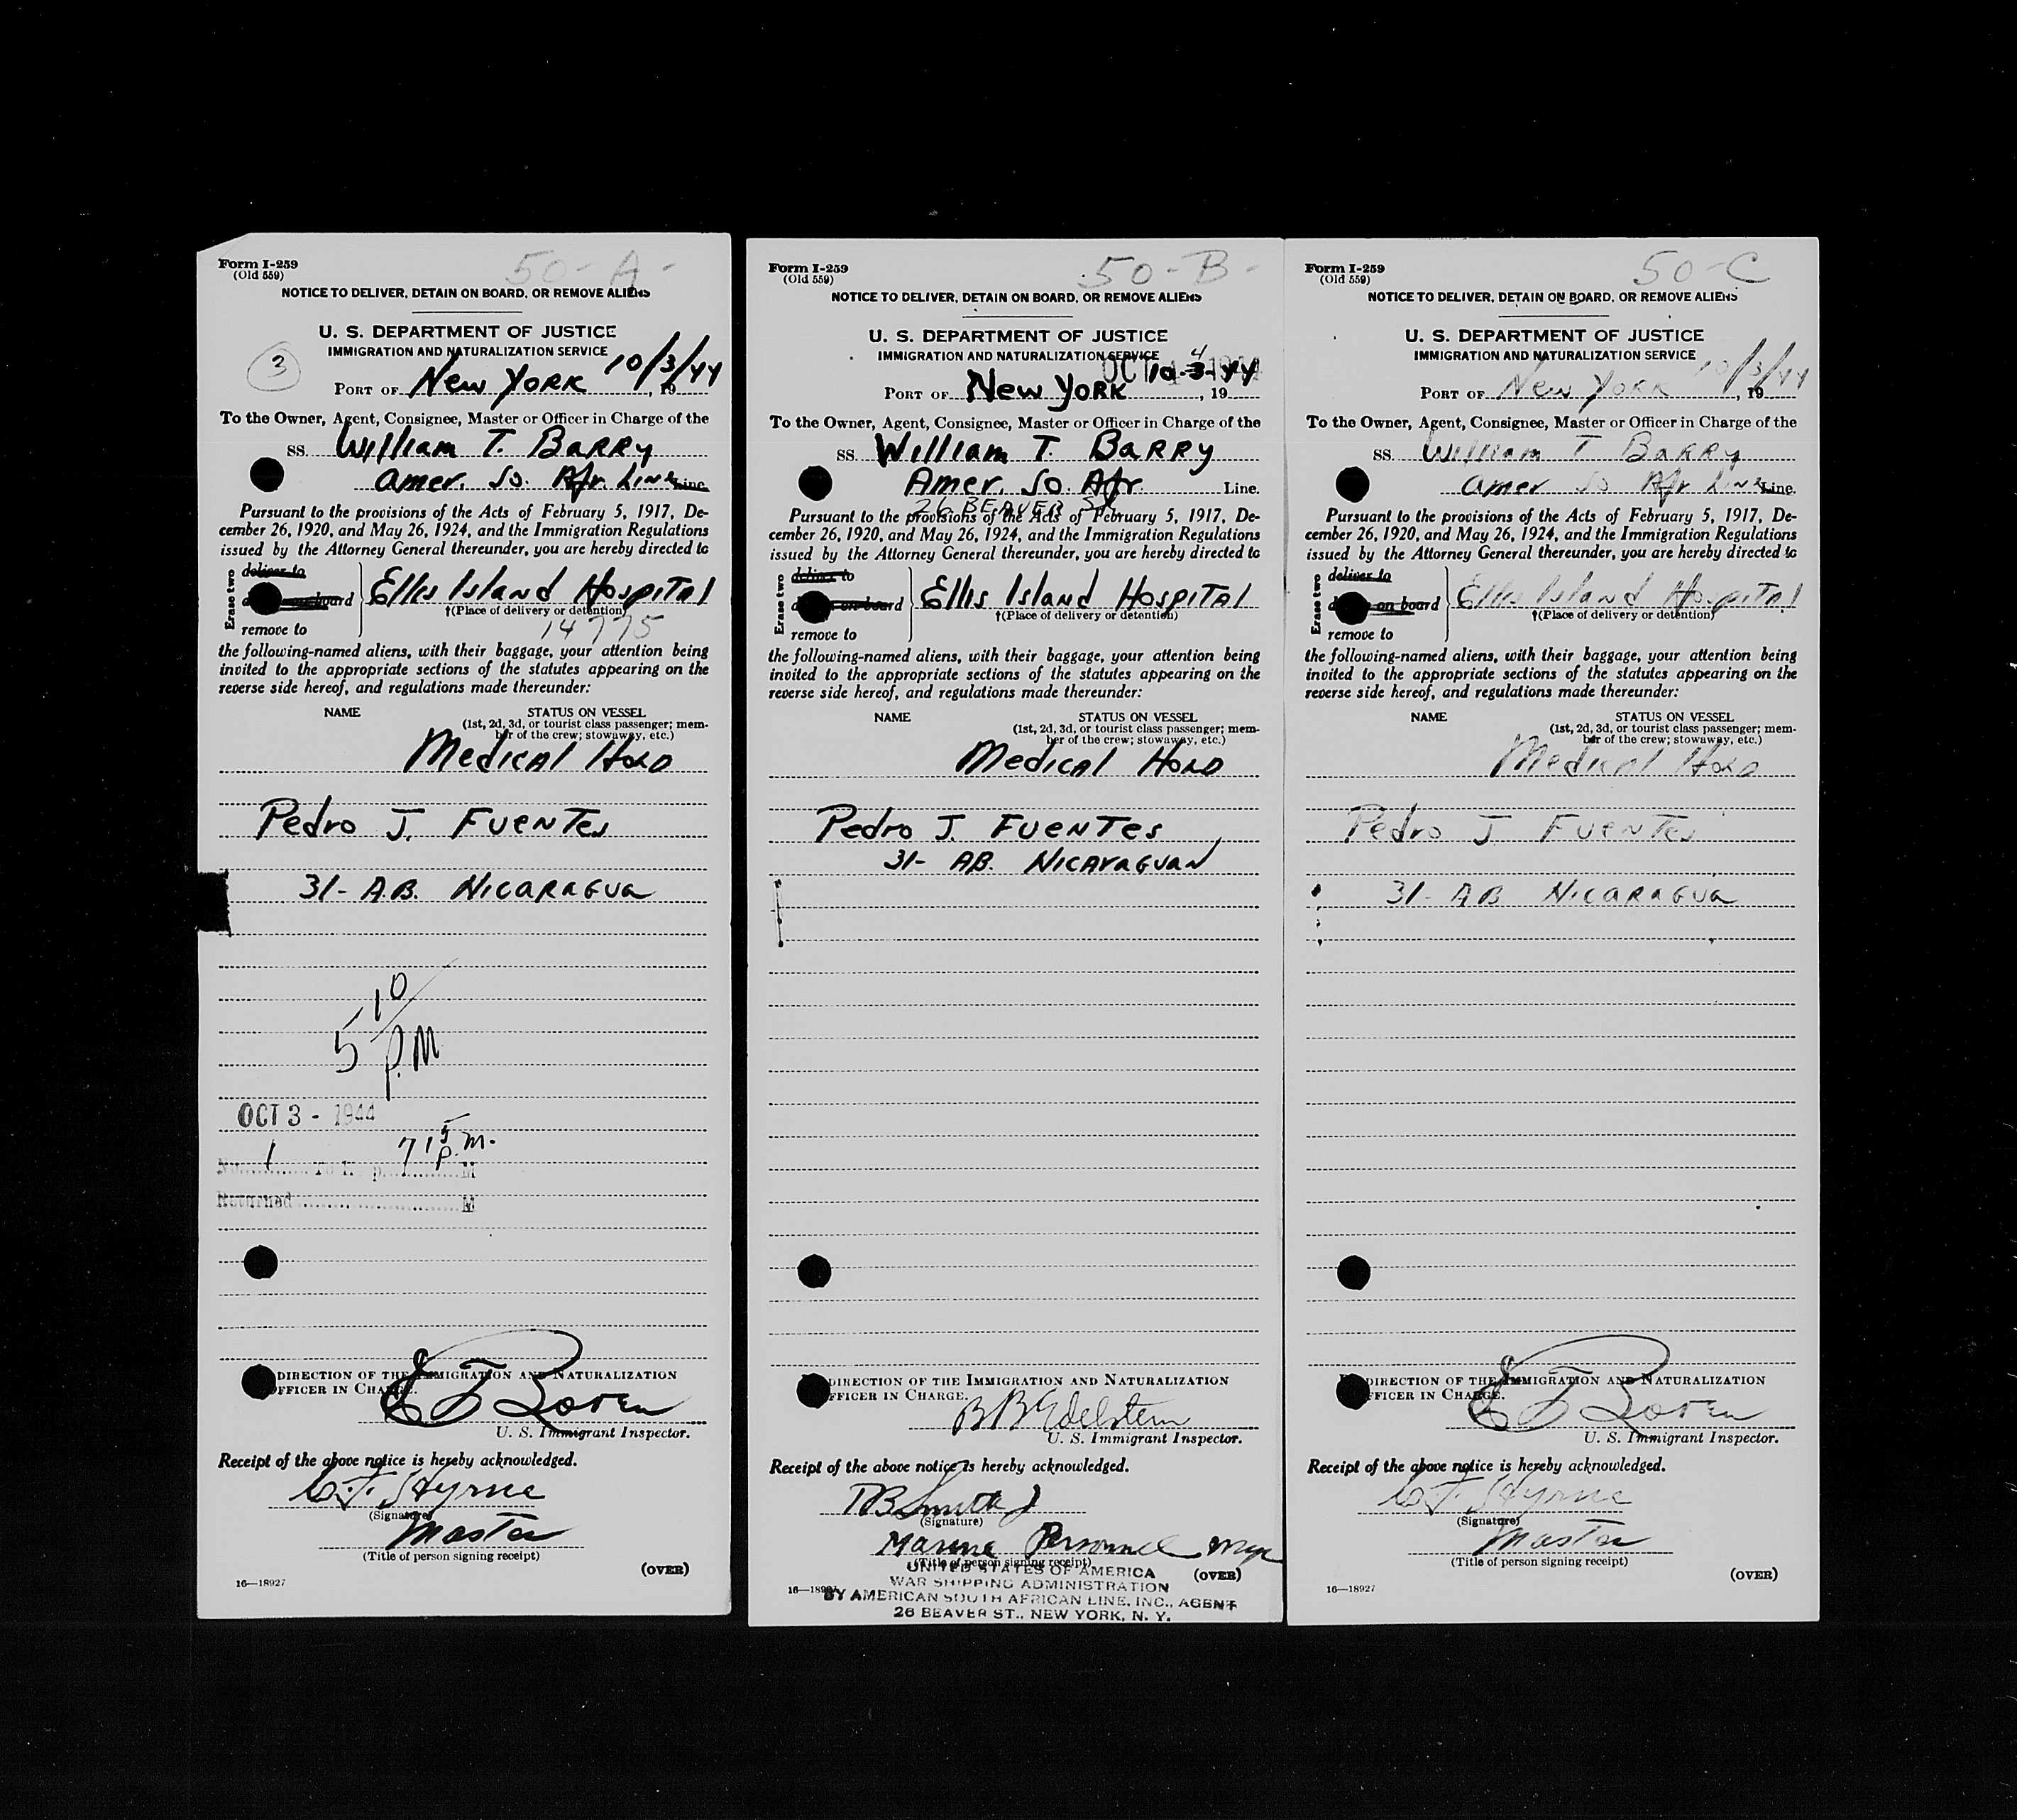 50-A-
Form I-259
(Old 559)
NOTICE TO DELIVER, DETAIN ON BOARD, OR REMOVE ALIENS
U. S. DEPARTMENT OF JUSTICE
IMMIGRATION AND NATURALIZATION SERVICE
3
10/3/44
PORT OF New York, 19
To the Owner, Agent, Consignee, Master or Officer in Charge of the
SS. William T. Barry
Amer. So. Afr. Line Line.
Pursuant to the provisions of the Acts of February 5, 1917, De-
cember 26, 1920, and May 26, 1924, and the Immigration Regulations
issued by the Attorney General thereunder, you are hereby directed to
Erase two
deliver to
board
remove to
Ellis Island Hospital
†(Place of delivery or detention)
14775
the following-named aliens, with their baggage, your attention being
invited to the appropriate sections of the statutes appearing on the
reverse side hereof, and regulations made thereunder:
NAME STATUS ON VESSEL
(1st, 2d, 3d, or tourist class passenger; mem-
ber of the crew; stowaway, etc.)
Medical Hold
Pedro J. Fuentes
31- A.B. Nicaragua
5 10 P.M
OCT 3 - 1944
No. 1 7 15 P.M. M
Returned M
DIRECTION OF THE IMMIGRATION AND NATURALIZATION
OFFICER IN CHARGE.
U. S. Immigrant Inspector.
Receipt of the above notice is hereby acknowledged.
(Signature)
Master
(Title of person signing receipt)
(OVER)
16—18927
50-B-
Form I-259
(Old 559)
NOTICE TO DELIVER, DETAIN ON BOARD, OR REMOVE ALIENS
U. S. DEPARTMENT OF JUSTICE
IMMIGRATION AND NATURALIZATION SERVICE
OCT 4 1944
10-3-44
PORT OF New York, 19
To the Owner, Agent, Consignee, Master or Officer in Charge of the
SS. William T. Barry
Amer. So. Afr. Line.
26 BEAVER St
Pursuant to the provisions of the Acts of February 5, 1917, De-
cember 26, 1920, and May 26, 1924, and the Immigration Regulations
issued by the Attorney General thereunder, you are hereby directed to
Erase two
deliver to
on board
remove to
Ellis Island Hospital
†(Place of delivery or detention)
the following-named aliens, with their baggage, your attention being
invited to the appropriate sections of the statutes appearing on the
reverse side hereof, and regulations made thereunder:
NAME STATUS ON VESSEL
(1st, 2d, 3d, or tourist class passenger; mem-
ber of the crew; stowaway, etc.)
Medical Hold
Pedro J. Fuentes
31- AB. Nicaraguan
DIRECTION OF THE IMMIGRATION AND NATURALIZATION
OFFICER IN CHARGE.
BB Edelstein
U. S. Immigrant Inspector.
Receipt of the above notice is hereby acknowledged.
Smith
(Signature)
Marine Personnel Mgr
(Title of person signing receipt)
UNITED STATES OF AMERICA
(OVER)
WAR SHIPPING ADMINISTRATION
16—18927
BY AMERICAN SOUTH AFRICAN LINE, INC., AGENT
26 BEAVER ST., NEW YORK, N. Y.
50-C
Form I-259
(Old 559)
NOTICE TO DELIVER, DETAIN ON BOARD, OR REMOVE ALIENS
U. S. DEPARTMENT OF JUSTICE
IMMIGRATION AND NATURALIZATION SERVICE
10/3/44
PORT OF New York, 19
To the Owner, Agent, Consignee, Master or Officer in Charge of the
SS. William T Barry
Amer So Afr Line Line.
Pursuant to the provisions of the Acts of February 5, 1917, De-
cember 26, 1920, and May 26, 1924, and the Immigration Regulations
issued by the Attorney General thereunder, you are hereby directed to
Erase two
deliver to
on board
remove to
Ellis Island Hospital
†(Place of delivery or detention)
the following-named aliens, with their baggage, your attention being
invited to the appropriate sections of the statutes appearing on the
reverse side hereof, and regulations made thereunder:
NAME STATUS ON VESSEL
(1st, 2d, 3d, or tourist class passenger; mem-
ber of the crew; stowaway, etc.)
Medical Hold
Pedro J Fuentes
31- AB Nicaragua
DIRECTION OF THE IMMIGRATION AND NATURALIZATION
OFFICER IN CHARGE.
U. S. Immigrant Inspector.
Receipt of the above notice is hereby acknowledged.
(Signature)
Master
(Title of person signing receipt)
(OVER)
16—18927